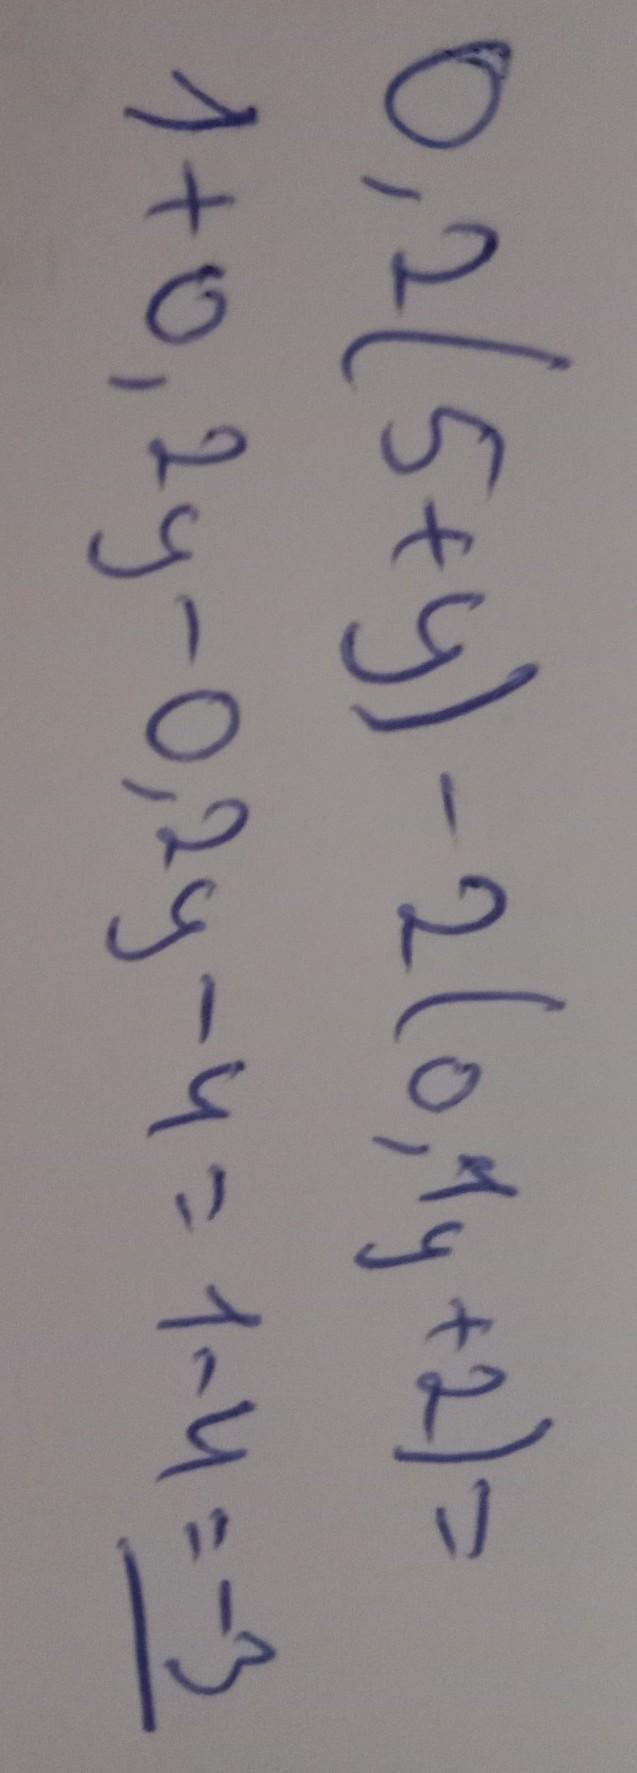 0,2(5+y)-2(0,1y+2)=
1+0,2y-0,2y-4=1-4=-3